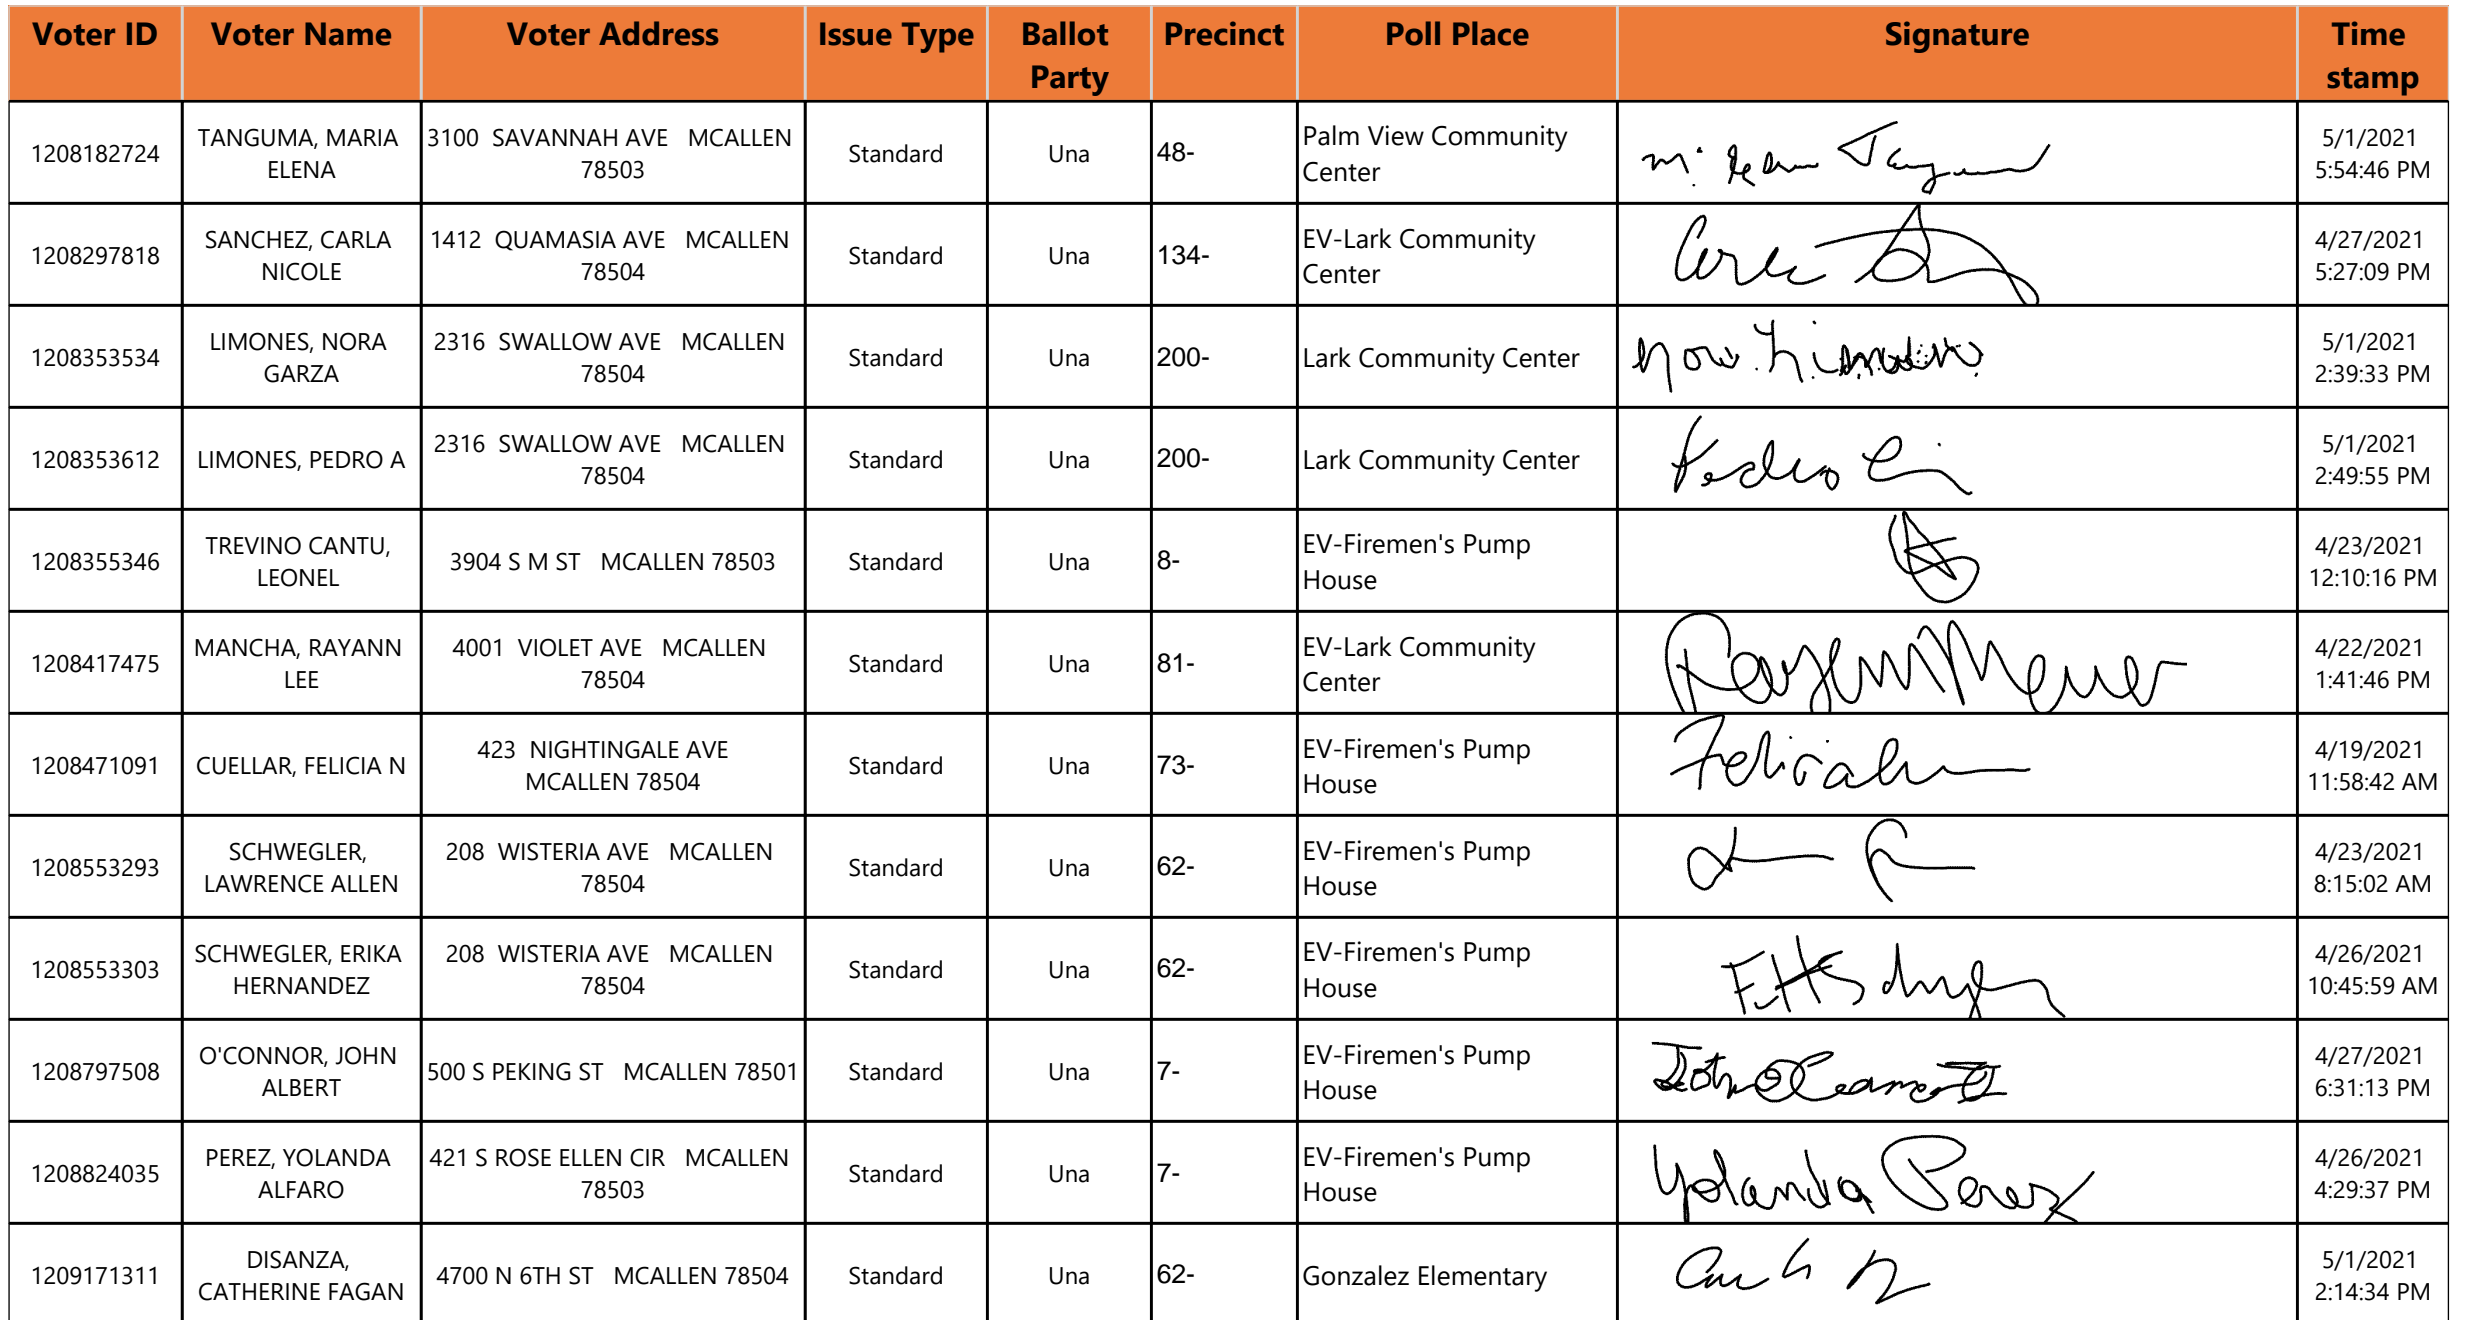 Voter ID Voter Name Voter Address Issue Type Ballot Party Precinct Poll Place Signature Time stamp
1208182724 TANGUMA, MARIA ELENA 3100 SAVANNAH AVE MCALLEN 78503 Standard Una 48- Palm View Community Center 5/1/2021 5:54:46 PM
1208297818 SANCHEZ, CARLA NICOLE 1412 QUAMASIA AVE MCALLEN 78504 Standard Una 134- EV-Lark Community Center 4/27/2021 5:27:09 PM
1208353534 LIMONES, NORA GARZA 2316 SWALLOW AVE MCALLEN 78504 Standard Una 200- Lark Community Center 5/1/2021 2:39:33 PM
1208353612 LIMONES, PEDRO A 2316 SWALLOW AVE MCALLEN 78504 Standard Una 200- Lark Community Center Pedro 5/1/2021 2:49:55 PM
1208355346 TREVINO CANTU, LEONEL 3904 S M ST MCALLEN 78503 Standard Una 8- EV-Firemen's Pump House 4/23/2021 12:10:16 PM
1208417475 MANCHA, RAYANN LEE 4001 VIOLET AVE MCALLEN 78504 Standard Una 81- EV-Lark Community Center 4/22/2021 1:41:46 PM
1208471091 CUELLAR, FELICIA N 423 NIGHTINGALE AVE MCALLEN 78504 Standard Una 73- EV-Firemen's Pump House 4/19/2021 11:58:42 AM
1208553293 SCHWEGLER, LAWRENCE ALLEN 208 WISTERIA AVE MCALLEN 78504 Standard Una 62- EV-Firemen's Pump House 4/23/2021 8:15:02 AM
1208553303 SCHWEGLER, ERIKA HERNANDEZ 208 WISTERIA AVE MCALLEN 78504 Standard Una 62- EV-Firemen's Pump House 4/26/2021 10:45:59 AM
1208797508 O'CONNOR, JOHN ALBERT 500 S PEKING ST MCALLEN 78501 Standard Una 7- EV-Firemen's Pump House 4/27/2021 6:31:13 PM
1208824035 PEREZ, YOLANDA ALFARO 421 S ROSE ELLEN CIR MCALLEN 78503 Standard Una 7- EV-Firemen's Pump House Yolanda Perez 4/26/2021 4:29:37 PM
1209171311 DISANZA, CATHERINE FAGAN 4700 N 6TH ST MCALLEN 78504 Standard Una 62- Gonzalez Elementary 5/1/2021 2:14:34 PM